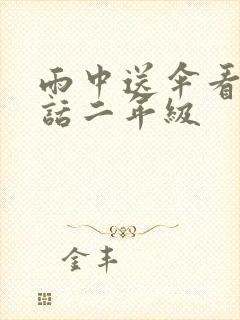 雨中送伞看
話二年級
金丰